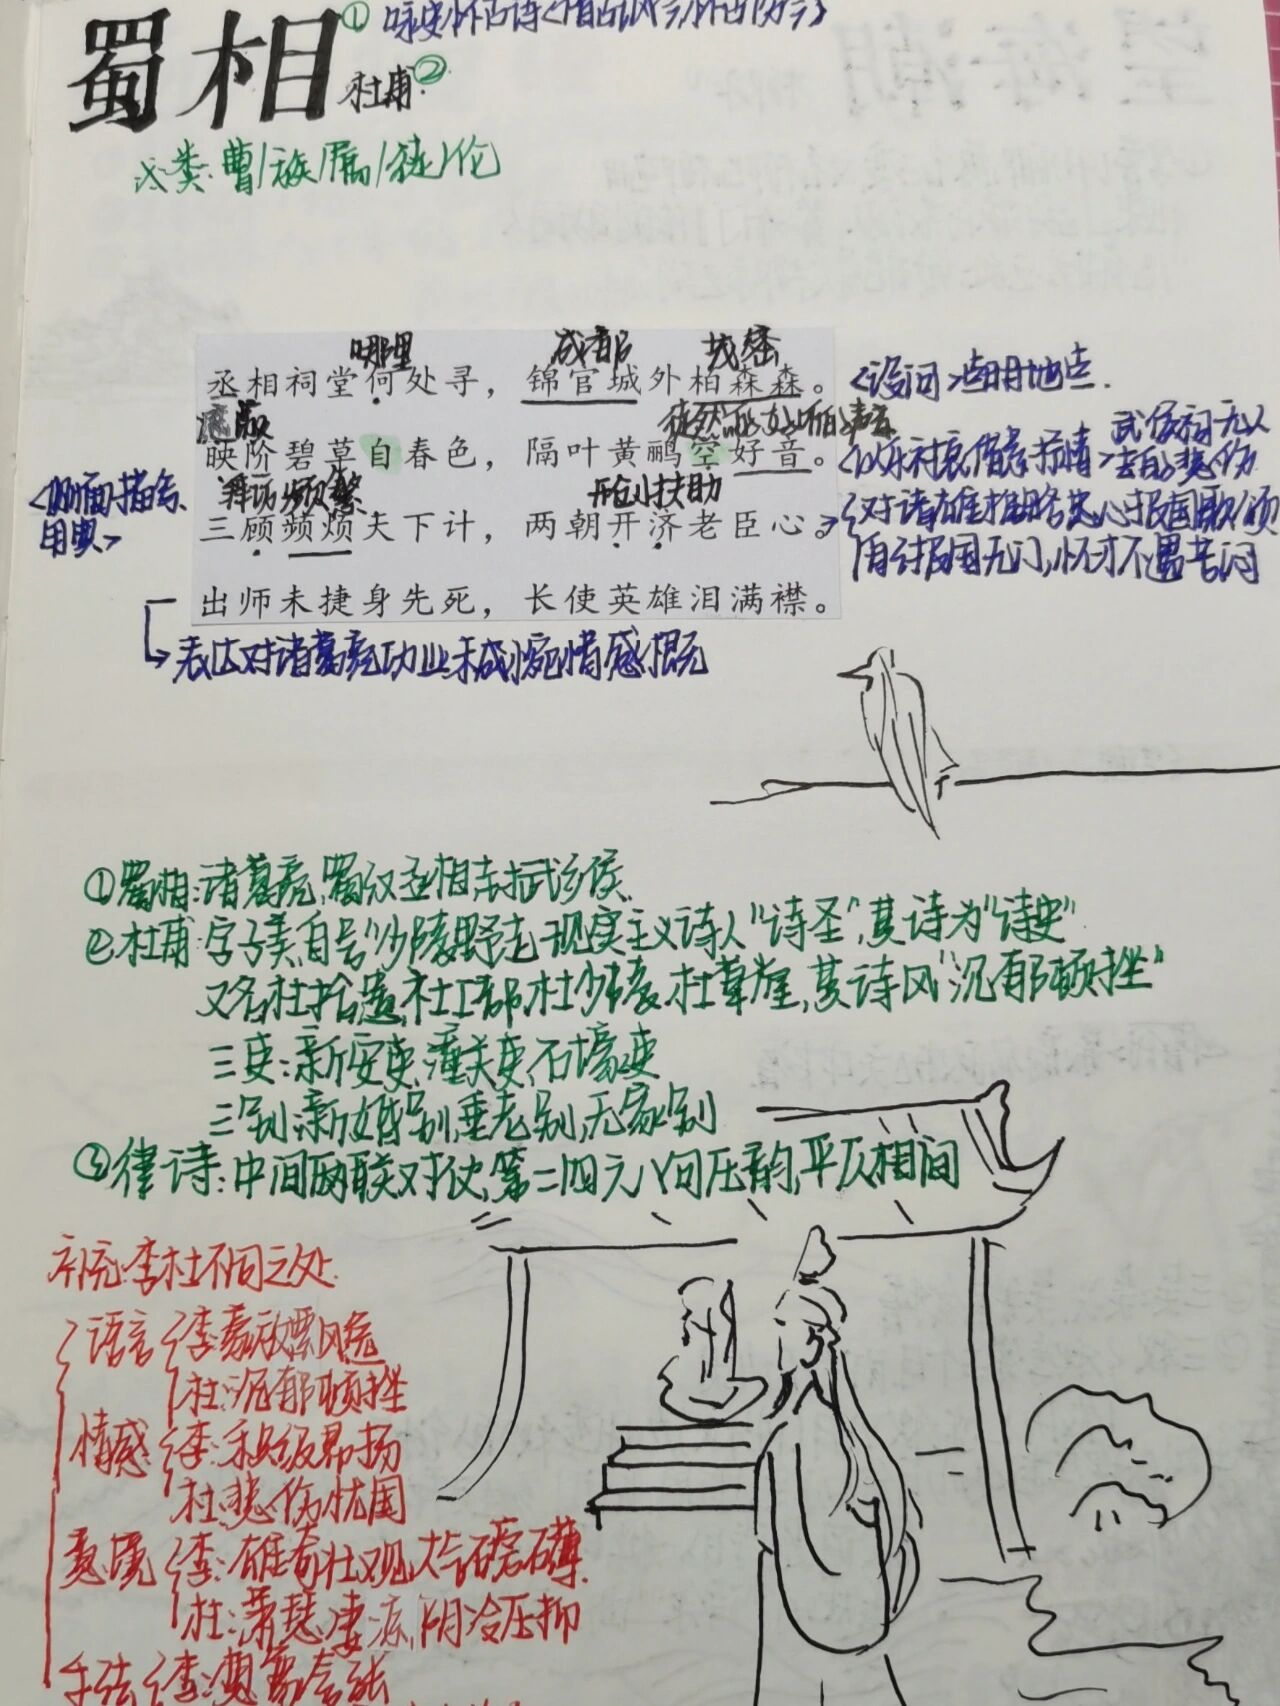 蜀相① 咏史怀古诗
杜甫②
类:曹/族/属/徒/伦
哪里 成都 茂密
丞相祠堂何处寻，锦官城外柏森森。
<设问>点明地点.
遮蔽 徒然
映阶碧草自春色，隔叶黄鹂空好音。
<以乐衬哀、借景抒情> 武侯祠无人去的悲伤
频繁 开创扶助
<侧面描写、用典>
三顾频烦天下计，两朝开济老臣心。
对诸雄雄略忠心报国歌颂
自身报国无门,怀才不遇苦闷
出师未捷身先死，长使英雄泪满襟。
表达对诸葛亮功业未成惋惜感慨
①蜀相:诸葛亮,蜀汉丞相
②杜甫:字子美,自号"少陵野老"现实主义诗人"诗圣",其诗为"诗史"
又名杜拾遗,杜工部,杜少陵,杜草堂,其诗风"沉郁顿挫"
三吏:新安吏,潼关吏,石壕吏
三别:新婚别,垂老别,无家别
③律诗:中间两联对仗,第二四六八句压韵,平仄相间
补充:李杜不同之处
语言 李:豪放飘逸
杜:沉郁顿挫
情感 李:积极昂扬
杜:悲伤忧国
意境 李:雄奇壮观,大气磅礴.
杜:萧瑟凄凉,阴冷压抑
手法 李:想象夸张